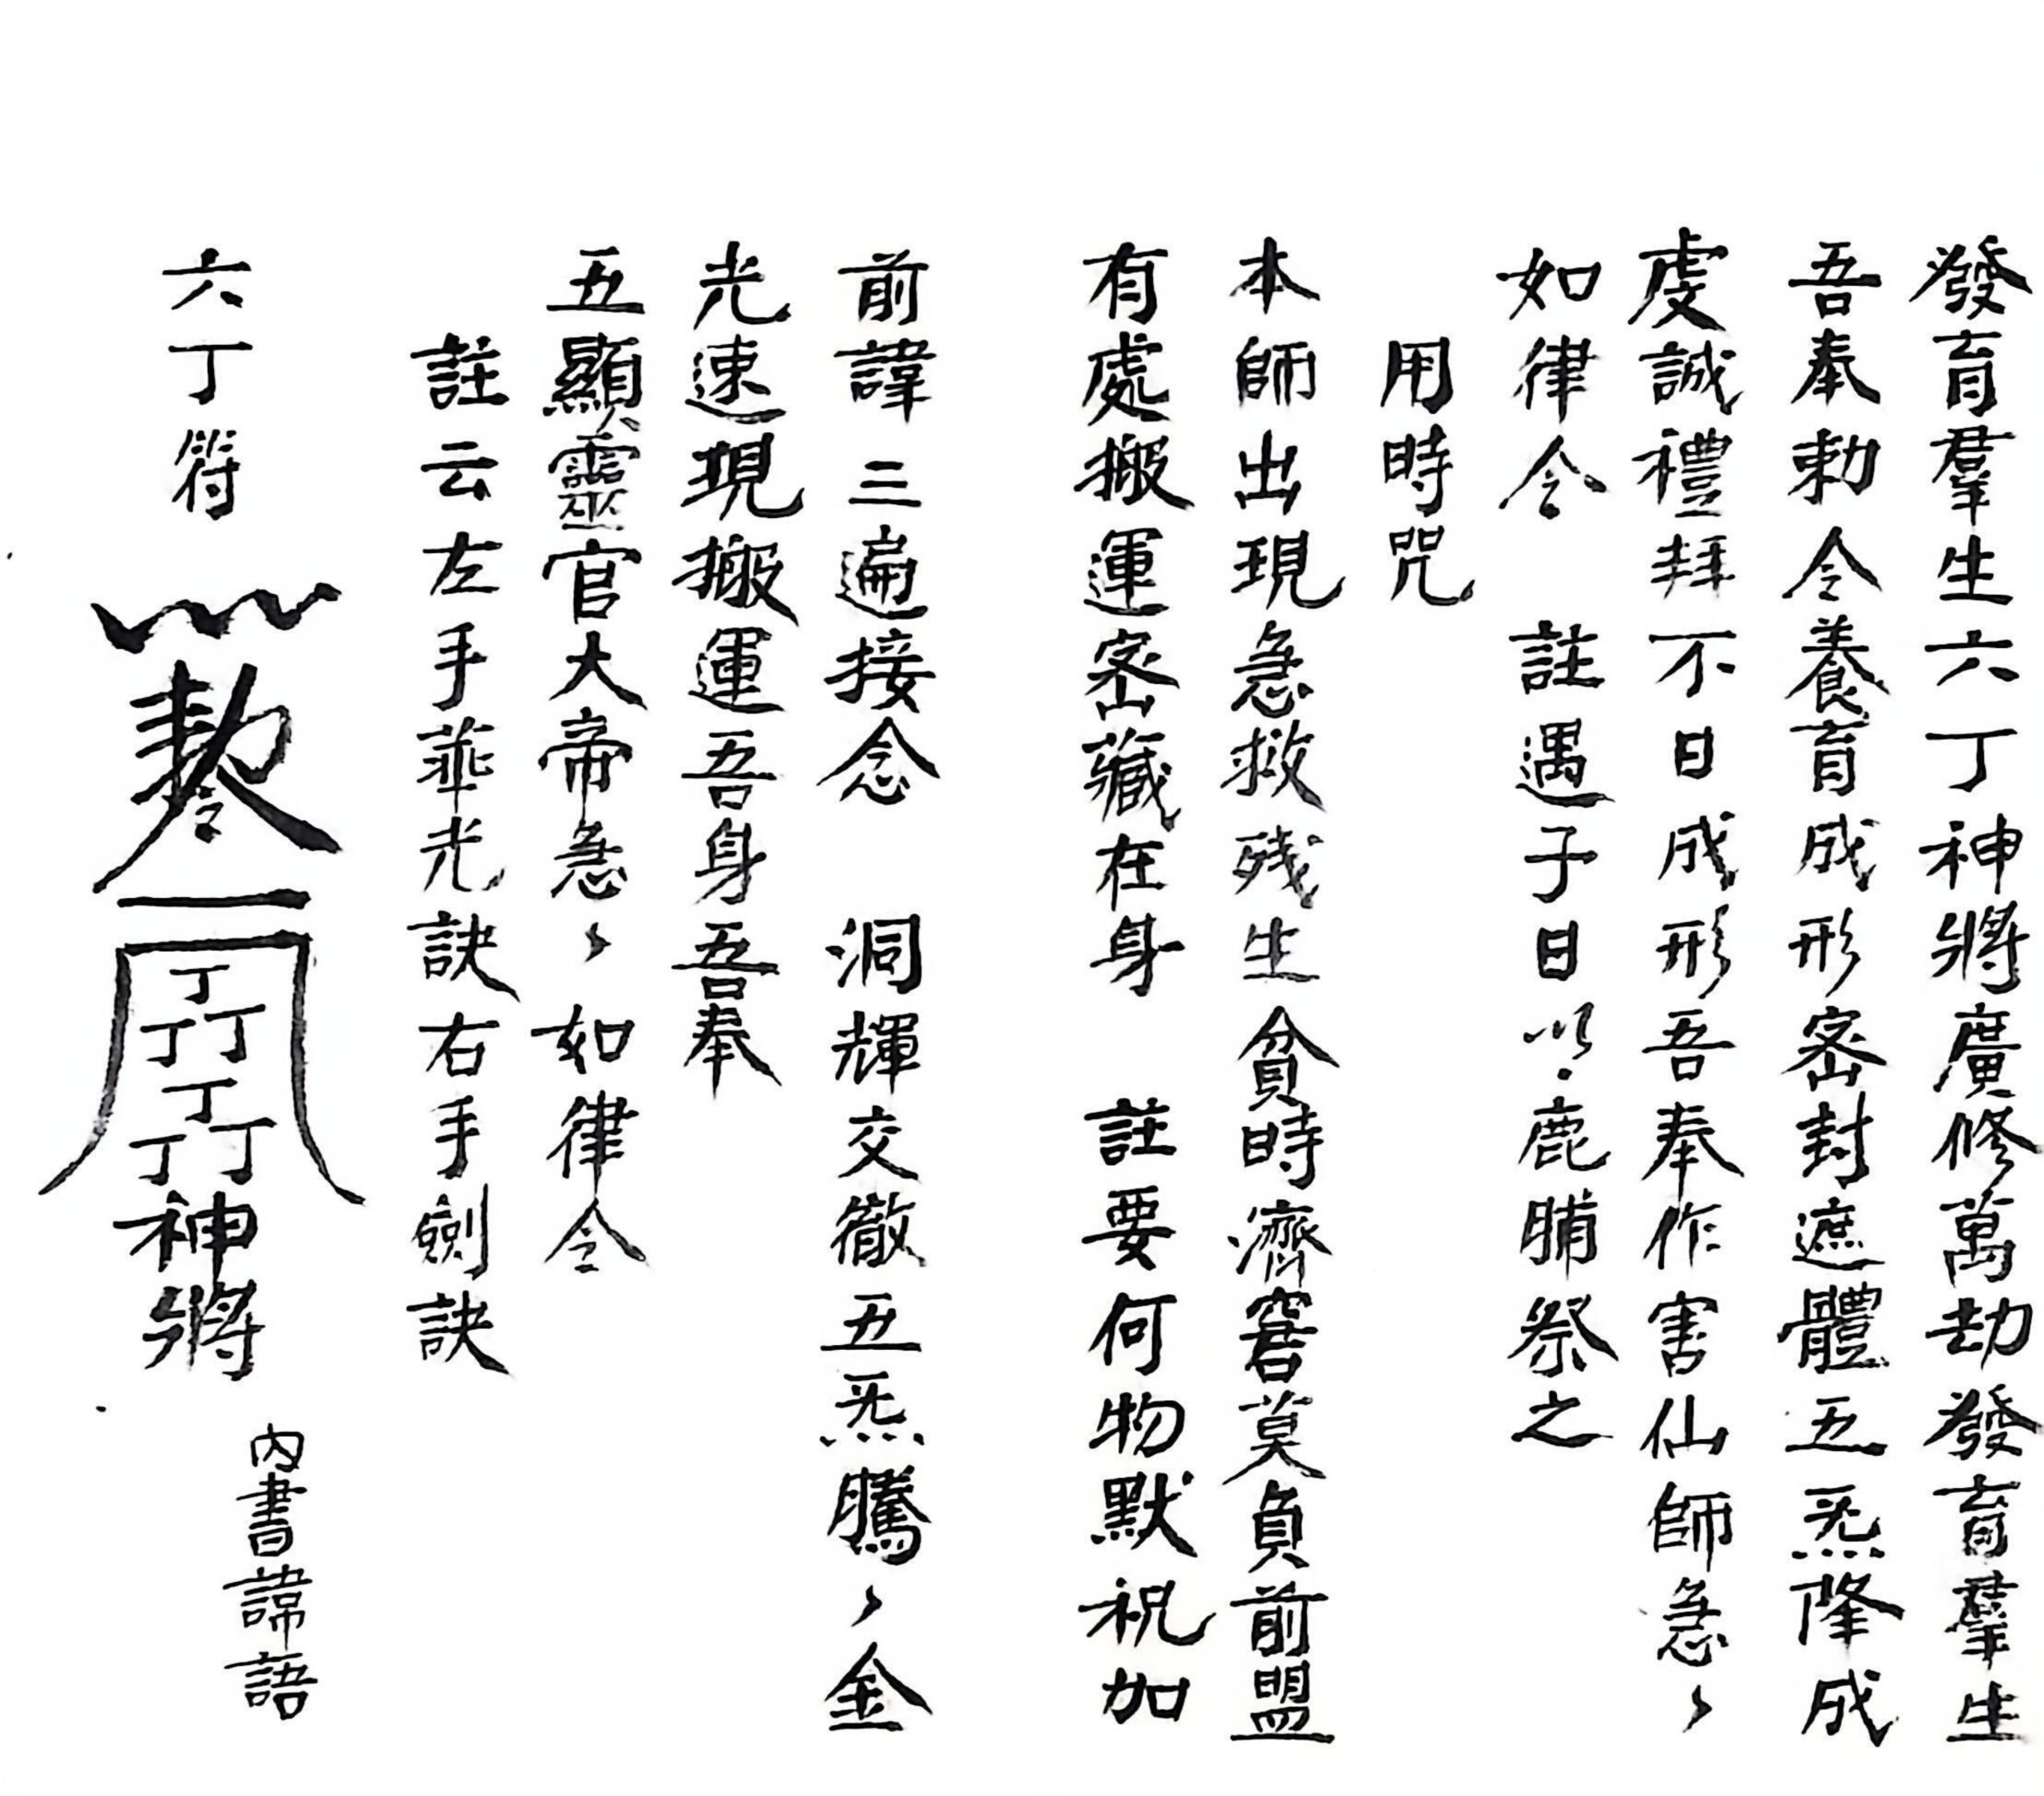 發育羣生六丁神將廣修萬劫發育羣生
吾奉勅令養育成形密封遮體五炁降成
虔誠禮拜不日成形吾奉作害仙師急々
如律令 註遇子日以鹿脯祭之
用時咒
本師出現急救残生貧時濟窘莫負前盟
有處搬運密藏在身 註要何物默祝加
前諱三遍接念 洞輝交徹五炁騰々金
光速現搬運吾身吾奉
五顯靈官大帝急々如律令
註云左手華光訣右手劍訣
六丁符
敕令
丁丁丁丁丁丁
神將
內書諱語